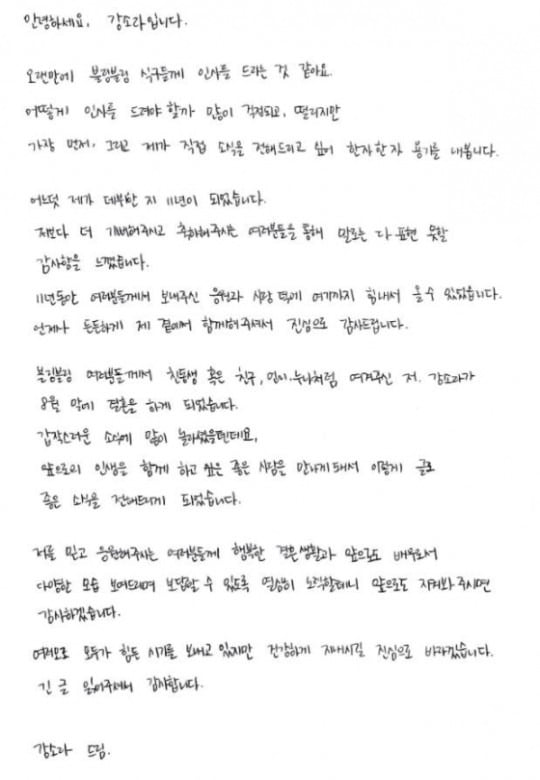 안녕하세요, 강소라입니다.
오랜만에 블링블링 식구들께 인사를 드리는 것 같아요.
어떻게 인사를 드려야 할까 많이 걱정되고, 떨리지만
가장 먼저, 그리고 제가 직접 소식을 전해드리고 싶어 한자 한자 용기를 내봅니다.
어느덧 제가 데뷔한 지 11년이 되었습니다.
저보다 더 기뻐해주시고 축하해주시는 여러분들을 통해 말로는 다 표현 못할
감사함을 느꼈습니다.
11년동안 여러분들께서 보내주신 응원과 사랑 덕에 여기까지 힘내서 올 수 있었습니다.
언제나 든든하게 제 곁에서 함께해 주셔서 진심으로 감사드립니다.
블링블링 여러분들께서 친동생 혹은 친구, 언니·누나처럼 여겨주신 저, 강소라가
8월 말에 결혼을 하게 되었습니다.
갑작스러운 소식에 많이 놀라셨을텐데요,
앞으로의 인생을 함께 하고 싶은 좋은 사람을 만나게 돼서 이렇게 글로
좋은 소식을 전해드리게 되었습니다.
저를 믿고 응원해주시는 여러분들께 행복한 결혼생활과 앞으로도 배우로서
다양한 모습 보여드리며 보답할 수 있도록 열심히 노력할테니 앞으로도 지켜봐 주시면
감사하겠습니다.
여러모로 모두가 힘든 시기를 보내고 있지만 건강하게 지내시길 진심으로 바라겠습니다.
긴 글 읽어주셔서 감사합니다.
강소라 드림.